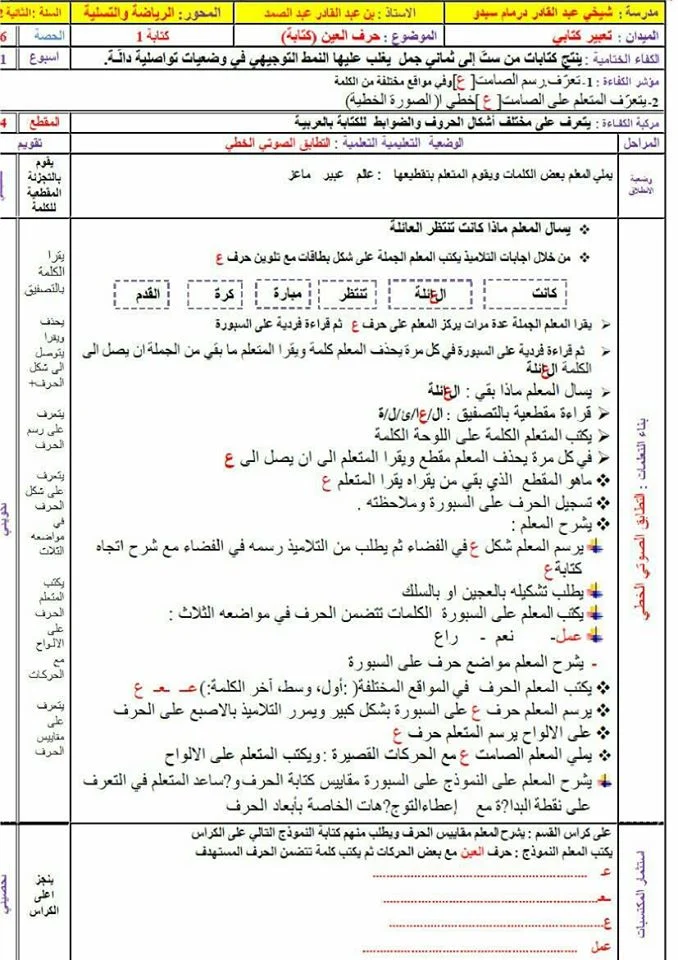 مدرسة : شيخي عبد القادر درمام سبدو الاستاذ : بن عبد القادر عبد الصمد المحور : الرياضة والتسلية السنة :الثانية 2
الميدان : تعبير كتابي الموضوع : حرف العين (كتابة) كتابة 1 الحصة 6
الكفاء الختامية : ينتج كتابات من ستّ إلى ثماني جمل يغلب عليها النمط التوجيهي في وضعيات تواصلية دالّـة. اسبوع 1
مؤشر الكفاءة : 1- تعرّف.رسم الصامت[ ع]وفي مواقع مختلفة من الكلمة
2-يتعرّف المتعلم على الصامت[ ع ]خطي ا( الصورة الخطية)
مركبة الكفـاءة : يتعرف على مختلف أشكال الحروف والضوابط للكتابة بالعربية المقطع 4
المراحل الوضعية التعليمية التعلمية : التطابق الصوتي الخطي تقويم
وضعية الانطلاق
يملي المعلم بعض الكلمات ويقوم المتعلم بتقطيعها : عالم عبير ماعز
يقوم بالتجزئة المقطعية للكلمة
بناء التعلمات : التطابق الصوتي الخطي
يسال المعلم ماذا كانت تنتظر العائلة
من خلال اجابات التلاميذ يكتب المعلم الجملة على شكل بطاقات مع تلوين حرف ع
كانت العائلة تنتظر مبارة كرة القدم
يقرا المعلم الجملة عدة مرات يركز المعلم على حرف ع ثم قراءة فردية على السبورة
ثم قراءة فردية على السبورة في كل مرة يحذف المعلم كلمة ويقرا المتعلم ما بقي من الجملة ان يصل الى
الكلمة العائلة
يسال المعلم ماذا بقي : العائلة
قراءة مقطعية بالتصفيق : ال/عا/ئ/ل/ة
يكتب المتعلم الكلمة على اللوحة الكلمة
في كل مرة يحذف المعلم مقطع ويقرا المتعلم الى ان يصل الى ع
ماهو المقطع الذي بقي من يقراه يقرا المتعلم ع
تسجيل الحرف على السبورة وملاحظته .
يشرح المعلم :
يرسم المعلم شكل ع في الفضاء ثم يطلب من التلاميذ رسمه في الفضاء مع شرح اتجاه
كتابة ع
يطلب تشكيله بالعجين او بالسلك
يكتب المعلم على السبورة الكلمات تتضمن الحرف في مواضعه الثلاث :
عمل- نعم - راع
- يشرح المعلم مواضع حرف على السبورة
يكتب المعلم الحرف في المواقع المختلفة( :أول، وسط، آخر الكلمة:) عـ ـعـ ع
يرسم المعلم حرف ع على السبورة بشكل كبير ويمرر التلاميذ بالاصبع على الحرف
على الالواح يرسم المتعلم حرف ع
يملي المعلم الصامت ع مع الحركات القصيرة :ويكتب المتعلم على الالواح
يشرح المعلم على النموذج على السبورة مقاييس كتابة الحرف و?ساعد المتعلم في التعرف
على نقطة البدا?ة مع إعطاءالتوج?هات الخاصة بأبعاد الحرف
يقرا الكلمة بالتصفيق
يحذف ويقرا يتوصل الى شكل الحرف+
يتعرف على رسم الحرف
يتعرف على شكل الحرف في مواضعه الثلاث
يكتب المتعلم الحرف على الالواح مع الحركات
يتعرف على مقاييس الحرف
تكويني
استثمار المكتسبات
على كراس القسم : يشرح المعلم مقاييس الحرف ويطلب منهم كتابة النموذج التالي على الكراس
يكتب المعلم النموذج : حرف العين مع بعض الحركات ثم يكتب كلمة تتضمن الحرف المستهدف
عـ ........................................
ـعـ ........................................
ع ........................................
عمل ........................................
ينجز اعلى الكراس
تحصيلي